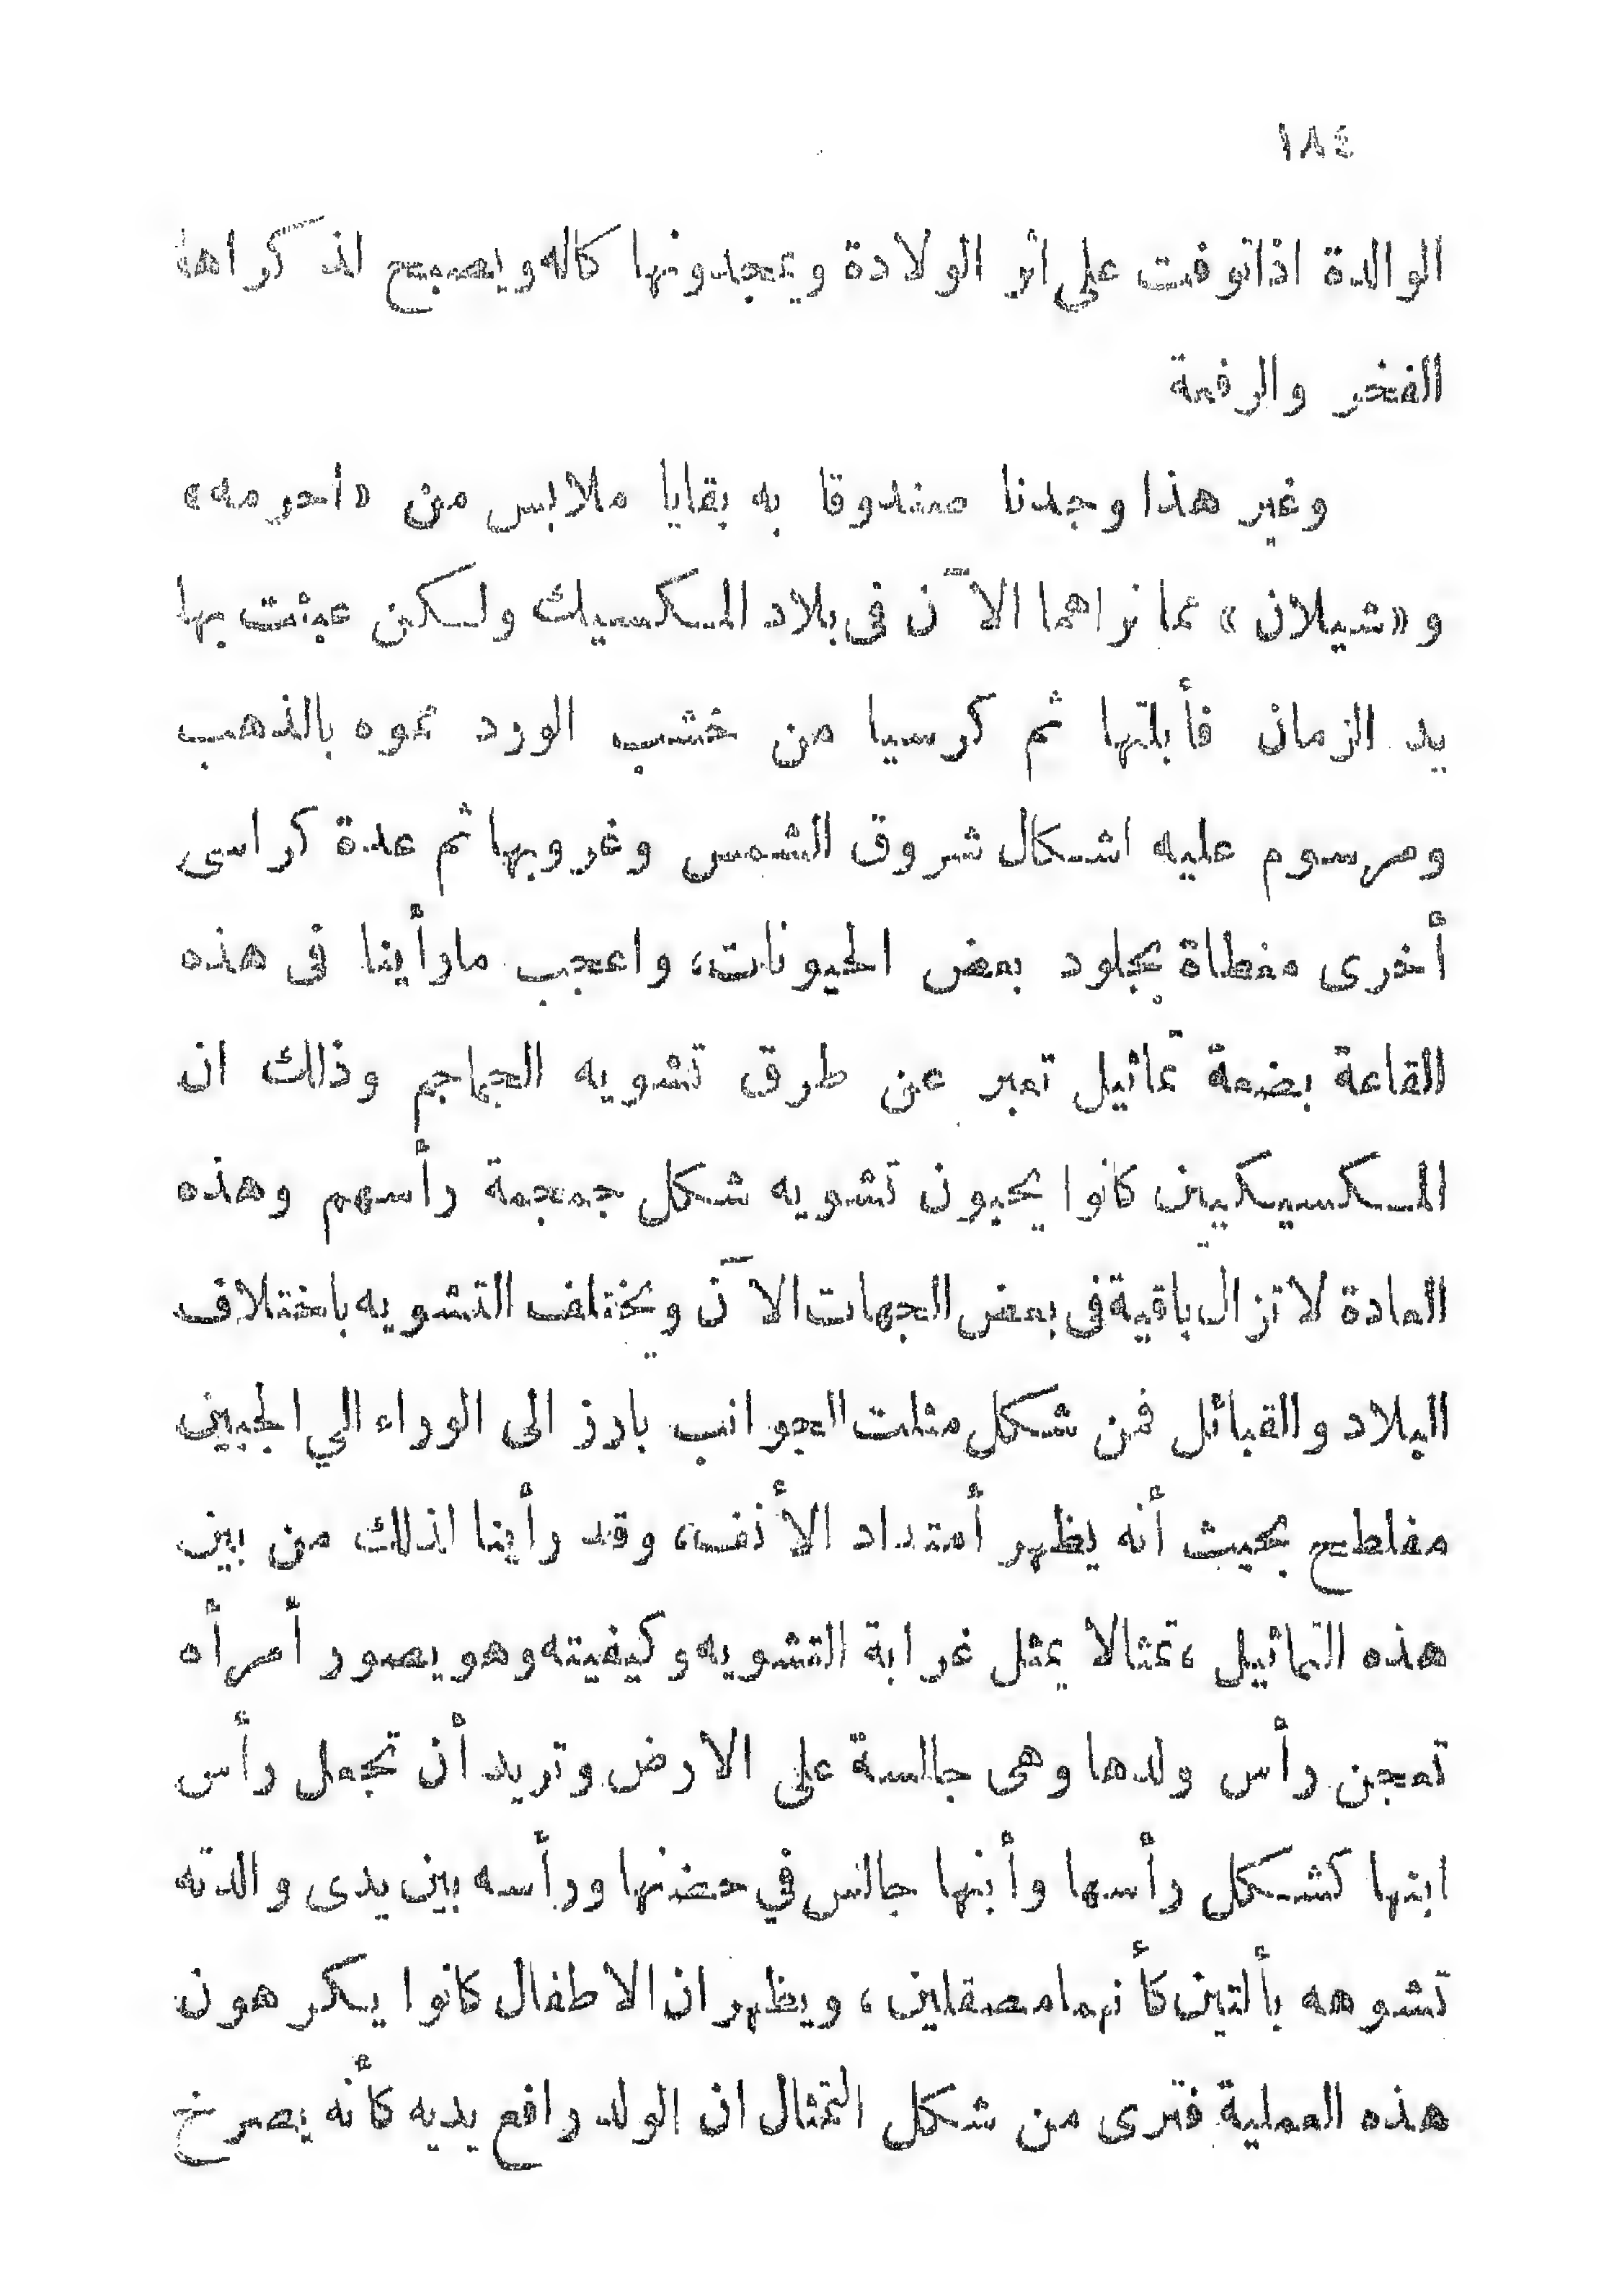 ١٨٤
الوالدة اذا توفت على أثر الولادة ويمجدونها كاله ويصبح لذكراها
الفخر والرفعة
وغير هذا وجدنا صندوقا به بقايا ملابس من «احرمه»
و«شيلان» مما نراهما الآن فى بلاد المكسيك ولكن عبثت بها
يد الزمان فأبلتها ثم كرسيا من خشب الورد مموه بالذهب
ومرسوم عليه اشكال شروق الشمس وغروبها ثم عدة كراسى
أخرى مغطاة بجلود بعض الحيونات، واعجب مارأينا فى هذه
القاعة بضعة تماثيل تعبر عن طرق تشويه الجماجم وذلك ان
المكسيكيين كانوا يحبون تشويه شكل جمجمة رأسهم وهذه
العادة لا تزال باقية فى بعض الجهات الآن ويختلف التشويه باختلاف
البلاد والقبائل فمن شكل مثلت الجوانب بارز الى الوراء الي الجبين
مفلطح بحيث أنه يظهر أمتداد الأنف، وقد رأينا لذلك من بين
هذه التماثيل، تمثالا يمثل غرابة التشويه وكيفيته وهو يصور أمرأه
تعجن رأس ولدها وهى جالسة على الارض وتريد أن تجعل رأس
ابنها كشكل رأسها وأبنها جالس في حضنها ورأسه بين يدى والدته
تشوهه بألتين كأنهما مصقلين، ويظهر ان الاطفال كانوا يكرهون
هذه العملية فترى من شكل التمثال ان الولد رافع يديه كأنه يصرخ